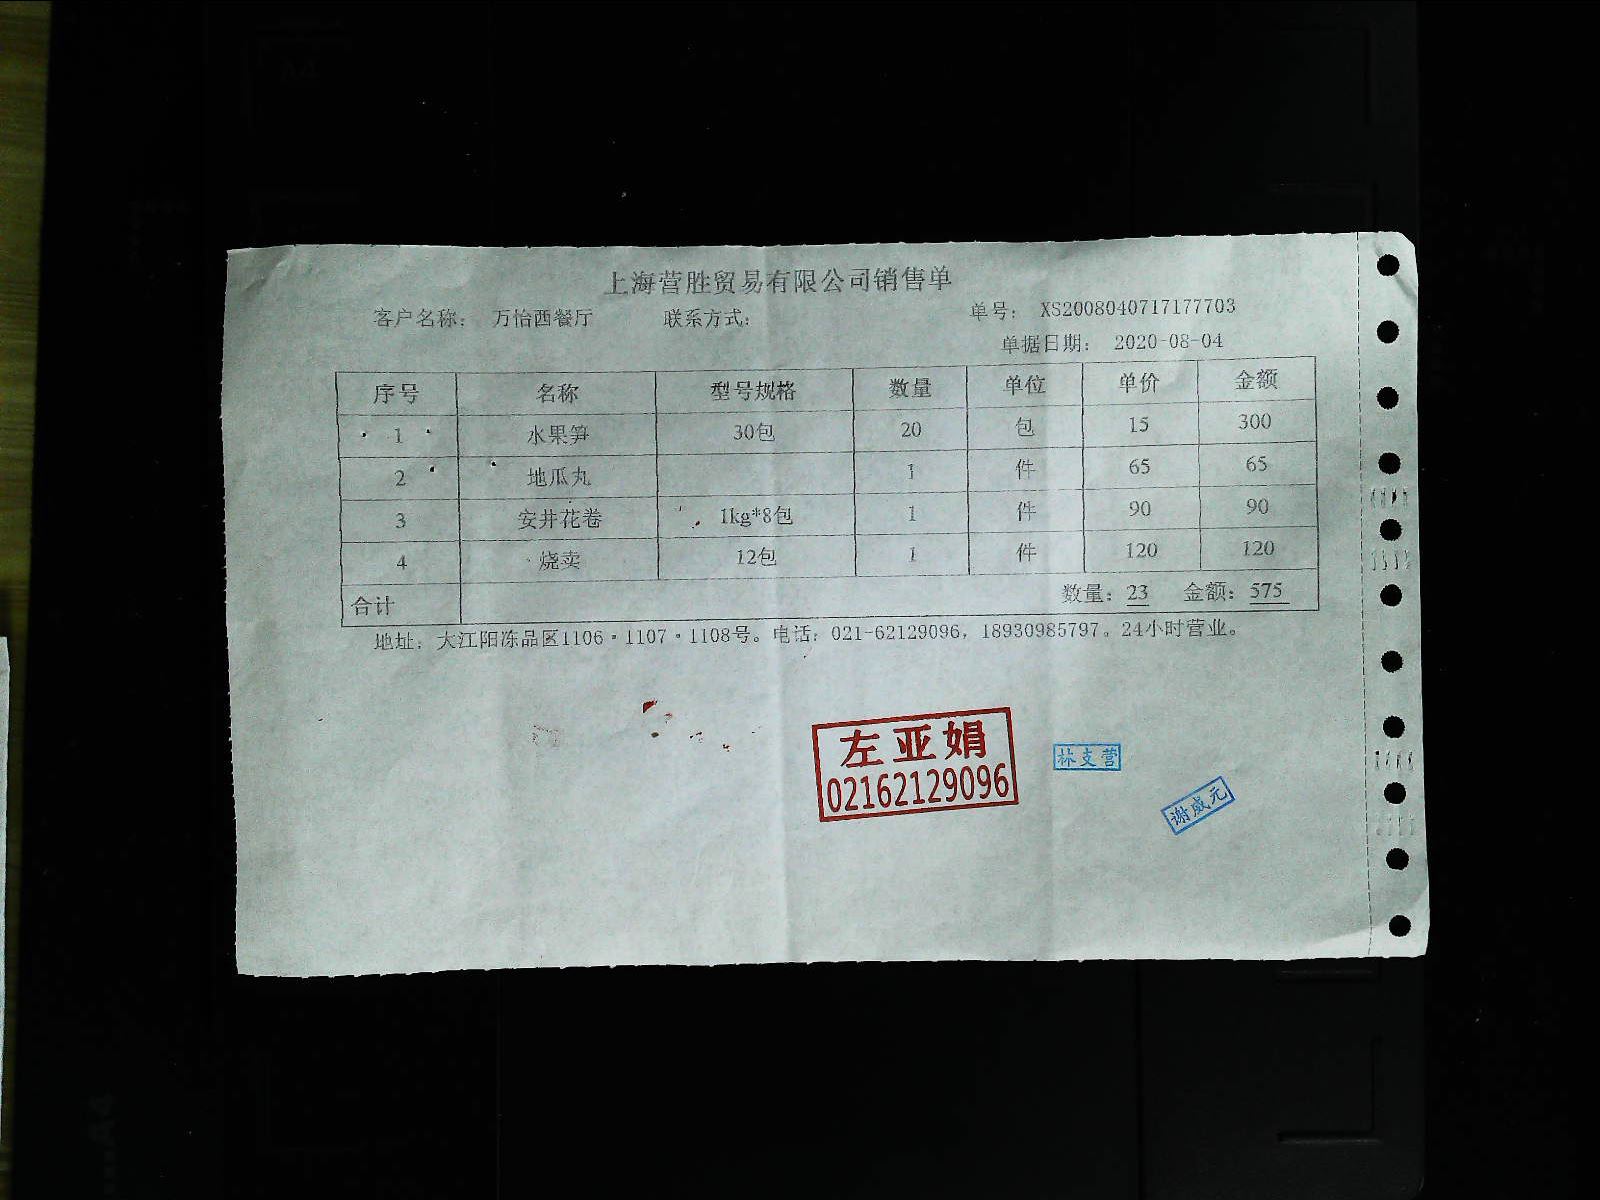 上海营胜贸易有限公司销售单
客户名称： 万怡西餐厅 联系方式： 单号： XS2008040717177703
单据日期： 2020-08-04
序号 名称 型号规格 数量 单位 单价 金额
1 水果笋 30包 20 包 15 300
2 地瓜丸 1 件 65 65
3 安井花卷 1kg*8包 1 件 90 90
4 烧卖 12包 1 件 120 120
合计 数量：23 金额：575
地址：大江阳冻品区1106·1107·1108号。电话：021-62129096，18930985797。24小时营业。
左亚娟
02162129096
林支营
谢威元